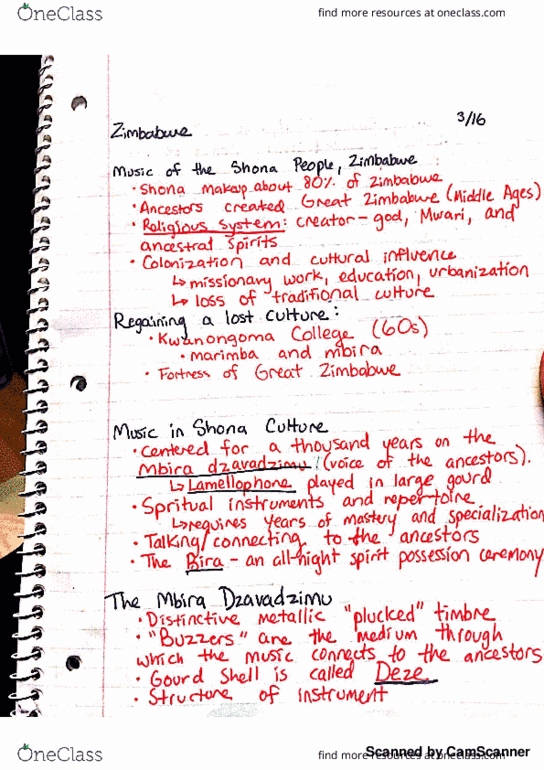 OneClass
find more resources at oneclass.com
3/16
Zimbabwe
Music of the Shona People, Zimbabwe :
• Shona makeup about 80% of Zimbabwe
• Ancestors created Great Zimbabwe (Middle Ages)
• Religious System: creator-god, Mwari, and
ancestral spirits
• Colonization and cultural influence
↳ missionary work, education, urbanization
↳ loss of traditional culture
Regaining a lost culture:
• Kwanongoma College (60s)
• marimba and mbira
• Fortress of Great Zimbabwe
Music in Shona Culture
• Centered for a thousand years on the
Mbira dzavadzimu (voice of the ancestors).
↳ Lamellophone played in large gourd
• Spritual instruments and repertoire
↳ requires years of mastery and specialization
• Talking/connecting to the ancestors
• The Bira - an all-night spirit possession ceremony
The Mbira Dzavadzimu
• Distinctive metallic "plucked" timbre
• "Buzzers" are the medium through
which the music connects to the ancestors
• Gourd shell is called Deze
• Structure of instrument
OneClass
find more resources at oneclass.com
Scanned by CamScanner